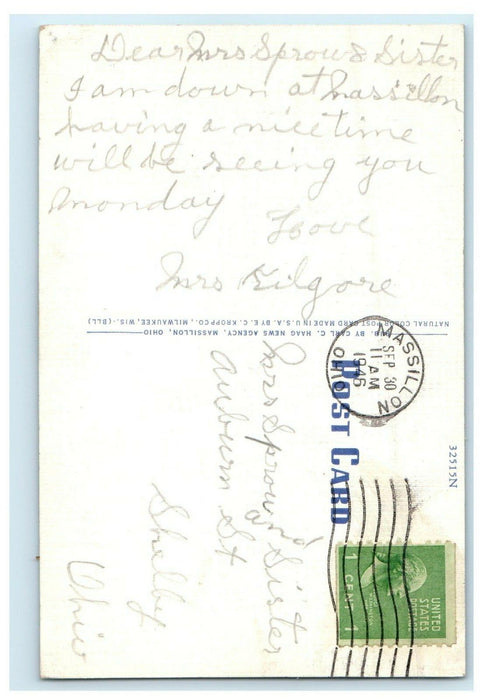 Dear Mrs Sprow & Sister
I am down at Massillon
having a nice time
will be seeing you
Monday
Love
Mrs Kilgore
PUB. BY CARL C. HAAG NEWS AGENCY, MASSILLON, OHIO
NATURAL COLOR POST CARD MADE IN U.S.A. BY E. C. KROPP CO., MILWAUKEE, WIS. (BLL)
POST CARD
32515N
MASSILLON
SEP 30
11 AM
1946
OHIO
UNITED
STATES
POSTAGE
1 CENT 1
Mrs Sprow
and Sister
Auburn St
Shelby
Ohio